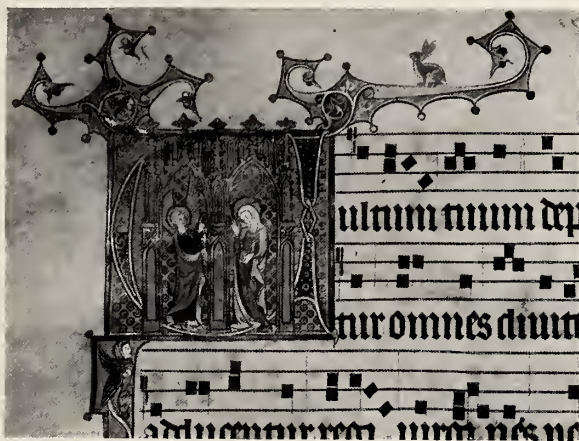 Vultum tuum dep
tur omnes diuit
adducentur regi uirgi nes